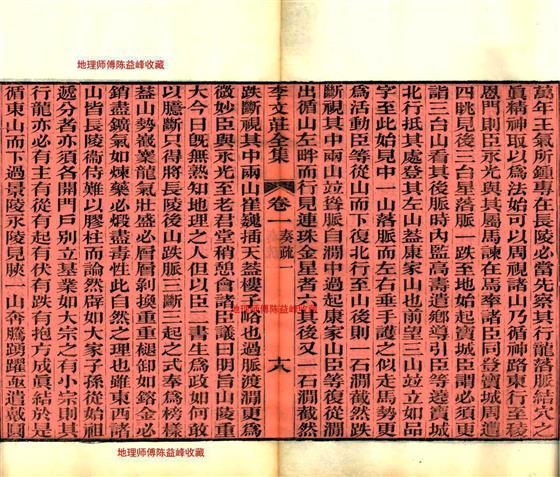 地理师傅陈益峰收藏
萬年王氣所鍾專在長陵必當先察其行龍落脈結穴之
眞精神取以爲法始可以周視諸山乃循神路東行至稜
恩門則臣永光與其屬馬諫在馬奉諸臣同登寶城周遭
四眺見後三台星落脈一跌至地始起寶城臣謂必須更
詣三台山看其後脈時内監高壽遣鄉導引臣等遶寶城
北行抵其處登其左山葢康家山也前望三山竝立如
字至此始見中一山落脈而左右垂手護之似走馬勢更
爲活動臣等從山而下復北行至山後則一石澗截然跌
斷視其中兩山竝聳脈自澗中過起康家山臣等復從澗
出循山左畔而行見連珠金星者三其後又一石澗截然
李文莊全集 卷一 奏疏一 十八
地理师傅陈益峰收藏
跌斷視其中兩山崔巍插天葢樓殿也過脈渡澗更爲
微妙臣與永光至老君堂稍憩會諸臣議曰明旨山陵重
大今日旣無熟知地理之人但以臣二書生爲政如何敢
以臆斷只得將長陵後山跌脈三斷三起之式奉爲榜樣
葢山勢嶪龍氣壯盛必層層剝換重重褪卸如鎔金必
銷盡鑛氣如煉藥必煅盡毒性此自然之理也雖東西諸
山皆長陵衞侍難以膠柱而論然辟如大家子孫從始祖
遞分者亦須各開門戸別立基業如大宗之有小宗則其
行龍亦必有主有從有起有伏有跌有抱方成眞結於是
循東山而下過景陵永陵見一山奔騰踴躍亟遣戴圓
地理师傅陈益峰收藏